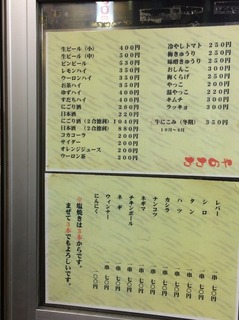 生ビール（小） 400円
生ビール（中） 550円
ビンビール 550円
レモンハイ 350円
ウーロンハイ 350円
お茶ハイ 350円
ゆずハイ 400円
すだちハイ 400円
にごり酒 260円
日本酒 220円
にごり酒（2合徳利）
日本酒（2合徳利）
コカコーラ 200円
サイダー 200円
オレンジジュース 200円
ウーロン茶 200円
冷やしトマト 250円
梅きゅうり 250円
味噌きゅうり 250円
おしんこ 300円
梅くらげ 250円
やっこ 200円
温やっこ 220円
キムチ 300円
ラッキョ 300円
牛にこみ（冬期） 350円
レバー 一串
シロ 一串
タン 一串
ハツ 一串
カシラ 一串
ナンコツ 一串
ネギマ 一串
チキンボール 一串
ネギ 一串
ウィンナー 一串
にんにく 一串
塩焼きは3本からです。
まぜて3本でもよろしいです。